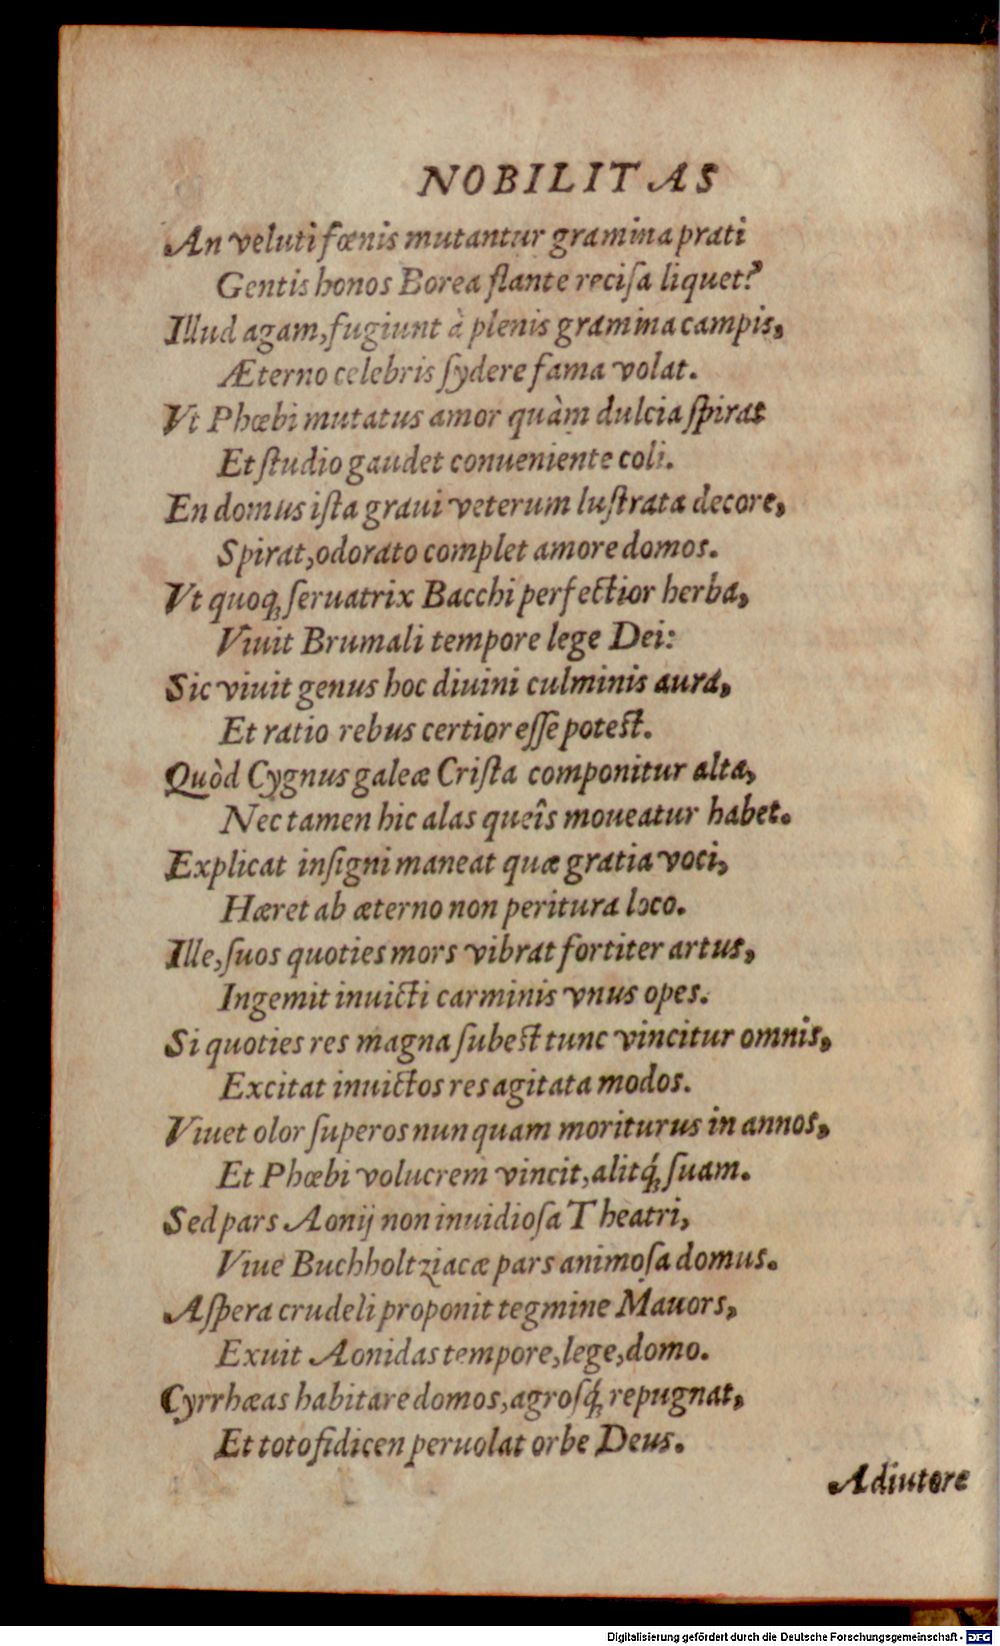 NOBILITAS
An veluti fœnis mutantur gramina prati
Gentis honos Borea flante recisa liquet?
Illud agam, fugiunt à plenis gramina campis,
Æterno celebris sydere fama volat.
Vt Phœbi mutatus amor quàm dulcia spirat
Et studio gaudet conueniente coli.
En domus ista graui veterum lustrata decore,
Spirat, odorato complet amore domos.
Vt quoq; seruatrix Bacchi perfectior herba,
Viuit Brumali tempore lege Dei:
Sic viuit genus hoc diuini culminis aura,
Et ratio rebus certior esse potest.
Quòd Cygnus galeæ Crista componitur alta,
Nec tamen hic alas queîs moueatur habet.
Explicat insigni maneat quæ gratia voci,
Hæret ab æterno non peritura loco.
Ille, suos quoties mors vibrat fortiter artus,
Ingemit inuicti carminis vnus opes.
Si quoties res magna subest tunc vincitur omnis,
Excitat inuictos res agitata modos.
Viuet olor superos nunquam moriturus in annos,
Et Phœbi volucrem vincit, alitq́; suam.
Sed pars Aonij non inuidiosa Theatri,
Viue Buchholtziacæ pars animosa domus.
Aspera crudeli proponit tegmine Mauors,
Exuit Aonidas tempore, lege, domo.
Cyrrhæas habitare domos, agrosq́; repugnat,
Et toto fidicen peruolat orbe Deus.
Adiutore
Digitalisierung gefördert durch die Deutsche Forschungsgemeinschaft - DFG